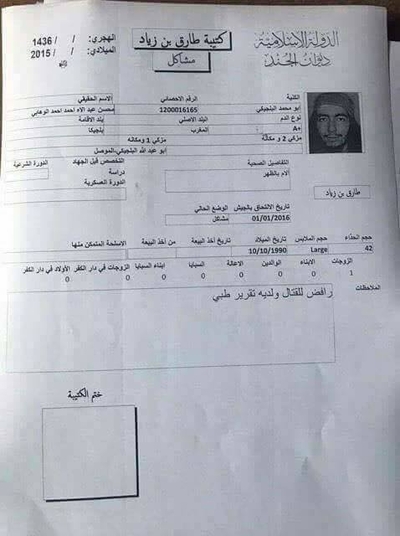 الدولة الإسلامية
ديوان الجند
كتيبة طارق بن زياد
مشاكل
الهجري: / / 1436
الميلادي: / / 2015
الكنية الرقم الاحصائي الاسم الحقيقي
ابو محمد البلجيكي 1200016165 محسن عبد الاه احمد احمد الوهابي
نوع الدم البلد الأصلي بلد الاقامة
A+ المغرب بلجيكا
مزكي 2 و مكانه مزكي 1 ومكانه
ابو عبد الله البلجيكي،الموصل
التفاصيل الصحية التخصص قبل الجهاد الدورة الشرعية
آلام بالظهر دراسة
الدورة العسكرية
طارق بن زياد
تاريخ الالتحاق بالجيش الوضع الحالي
01/01/2016 مشاكل
حجم الحذاء حجم الملابس تاريخ الميلاد تاريخ أخذ البيعة من أخذ البيعة الاسلحة المتمكن منها
42 Large 10/10/1990
الزوجات الابناء الوالدين الاعالة السبايا ابناء السبايا الزوجات في دار الكفر الأولاد في دار الكفر
1 0 0 0 0 0 0 0
الملاحظات
رافض للقتال ولديه تقرير طبي
ختم الكتيبة